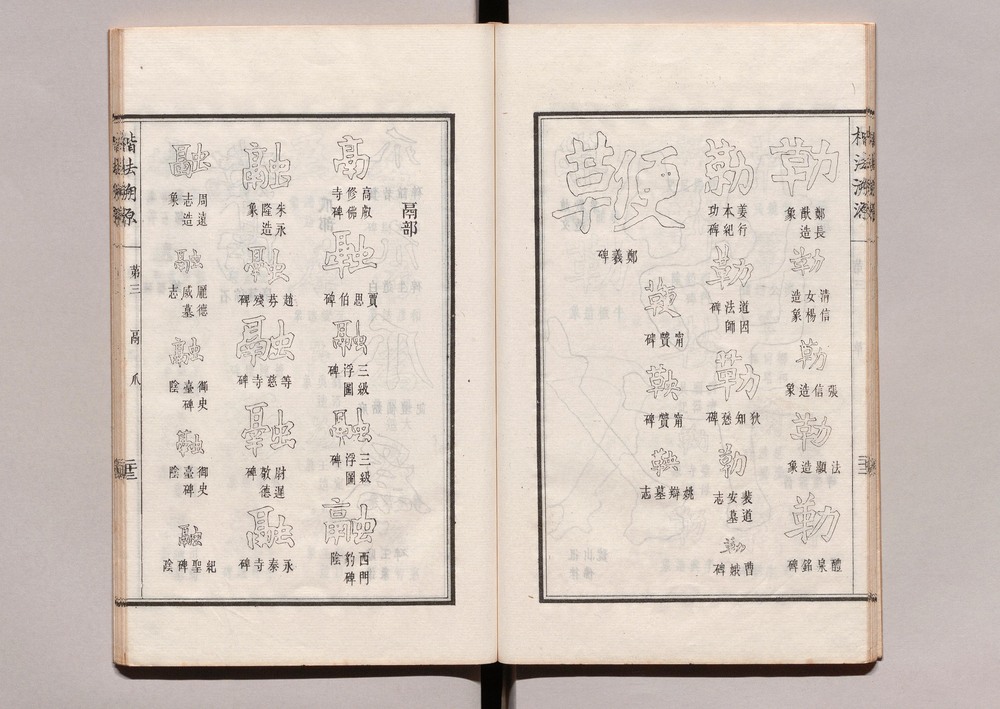 楷法溯源
勒 鄭長猷造象
勒 清信女楊造象
勒 張信造象
勒 法顯造象
勒 醴泉銘碑
勒 姜行本紀功碑
勒 道因法師碑
勒 狄知愻碑
勒 裴道安墓志
勒 曹娥碑
鞭 鄭義碑
鞭 甯贙碑
鞅 甯贙碑
鞅 姚辯墓志
鬲部
鬲 高叡修佛寺碑
融 賈思伯碑
融 三級浮圖碑
融 三級浮圖碑
融 西門豹碑陰
融 朱永隆造象
融 趙芬殘碑
融 等慈寺碑
融 尉遲敬德碑
融 永泰寺碑
融 周遠志造象
融 龐德威墓志
融 御史臺碑陰
融 御史臺碑陰
融 紀聖碑陰
楷法溯源 第三 鬲 爪